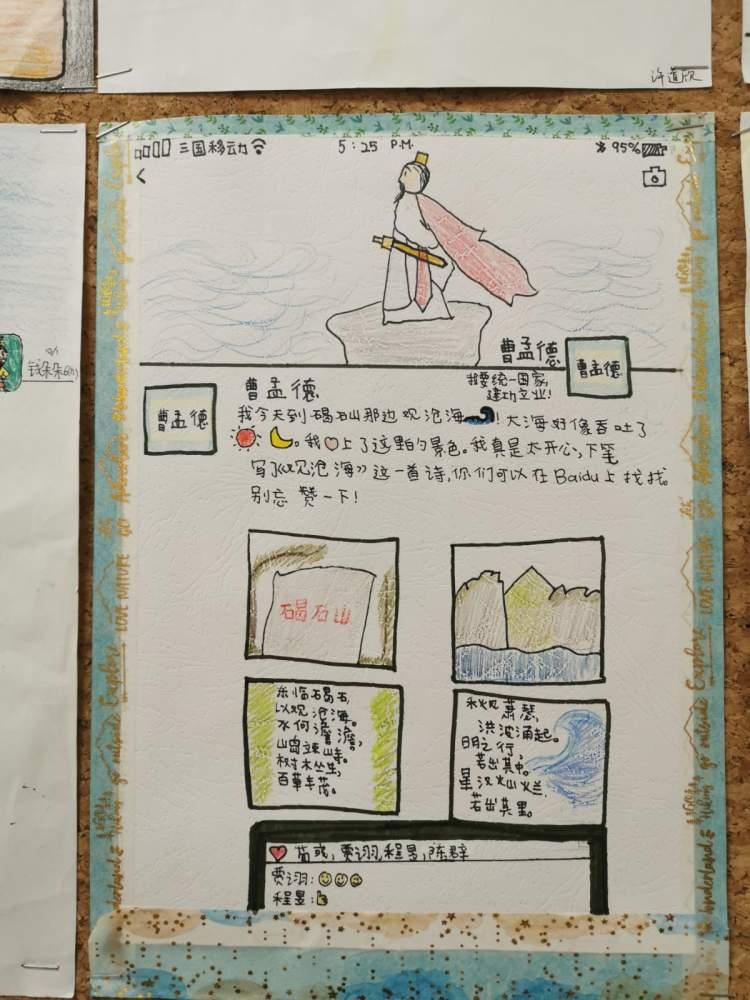 许道欣
钱朵朵
三国移动
5:25 P.M.
95%
曹孟德
曹孟德
我要统一国家,
建功立业!
曹孟德
曹孟德
我今天到碣石山那边观沧海! 大海好像吞吐了
。我上了这里的景色。我真是太开心,下笔
写了《观沧海》这一首诗,你们可以在Baidu上找找。
别忘赞一下!
碣石山
东临碣石,
以观沧海。
水何澹澹,
山岛竦峙。
树木丛生,
百草丰茂。
秋风萧瑟,
洪波涌起。
日月之行,
若出其中。
星汉灿烂,
若出其里。
荀彧,贾诩,程昱,陈群
贾诩:
程昱:
Explore
go outside
Adventure
LOVE NATURE
Explore
go outside
Wonderland &